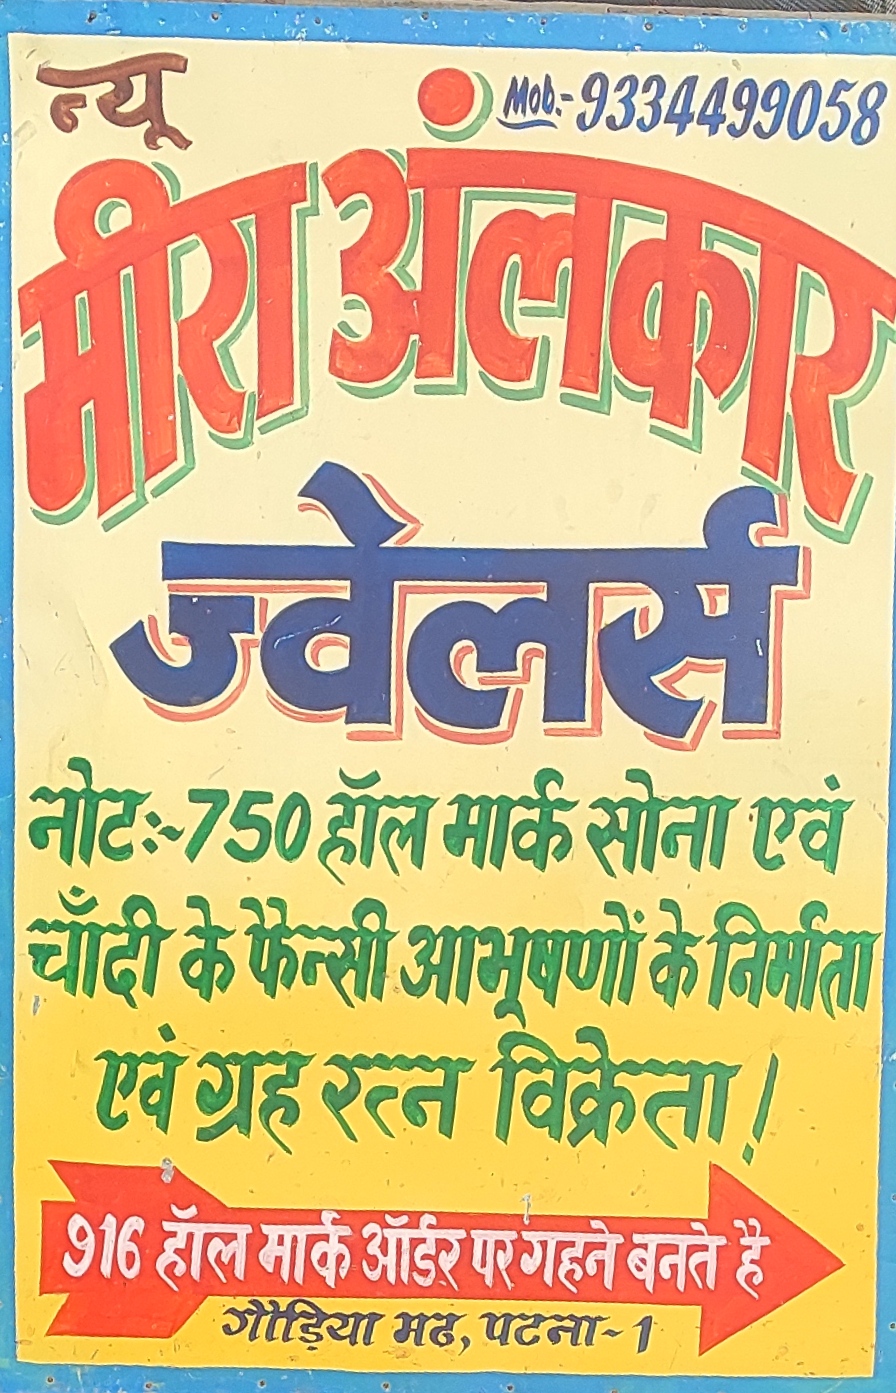 न्यू
Mob.-9334499058
मीरा अंलकार
ज्वेलर्स
नोटः-750 हॉल मार्क सोना एवं
चाँदी के फैन्सी आभूषणों के निर्माता
एवं ग्रह रत्न विक्रेता!
916 हॉल मार्क ऑर्डर पर गहने बनते है
गौड़िया मठ, पटना-1